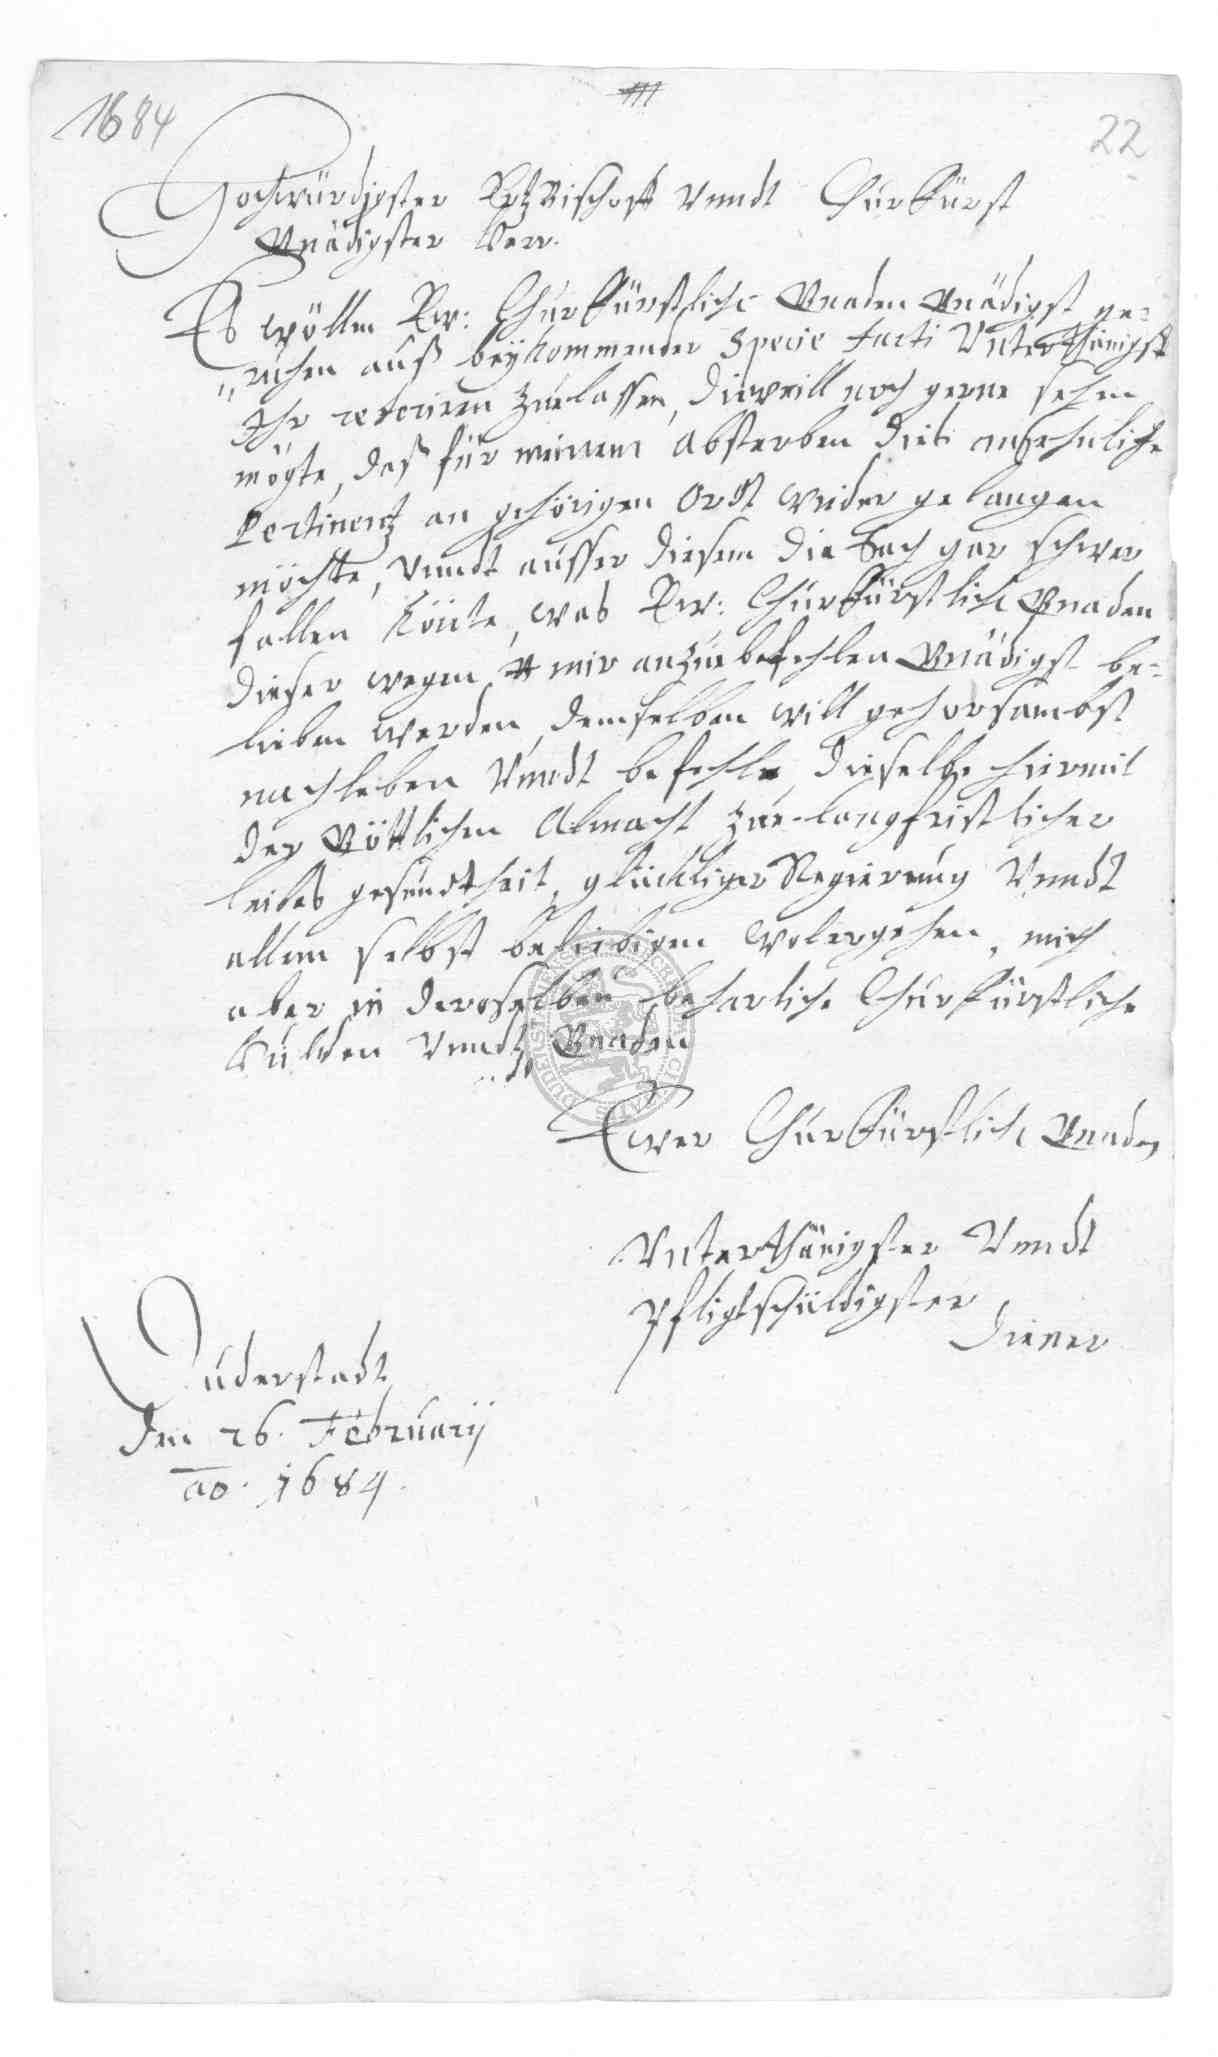 1684
22
Hochwürdigster Ertzbischoff Vnndt Churfürst
Gnädigster Herr.
Es wöllen Ew: Churfürstliche Gnaden Gnädigst ge-
ruhen auß beÿkommender Specie facti Vnterthänigst
Ihr referiren zuelassen, dieweill noch gerne sehen
mögte, daß für meinem absterben diese ansehnliche
Pertinentz an gehörigen Ordt wider gelangen
möchte, Vnndt ausser diesem die Sach gar schwer
fallen könte, was Ew: Churfürstliche Gnaden
dieser wegen mir anzuebefehlen Gnädigst be-
lieben werden, demselben will gehorsambst
nachleben Vnndt befehle dieselbe hiermit
der Göttlichen Almacht zue langfristlicher
leibes gesundtheit, glückliger Regierung Vnndt
allem selbst beliebigen wolergehen, mich
aber in deroselben beharliche Churfürstliche
Hulden Vnndt Gnaden
Ewer Churfürstliche Gnaden
Vnterthänigster Vnndt
Pfligtschüldigster
Diener
Duderstadt
den 26. Februarij
ao. 1684.